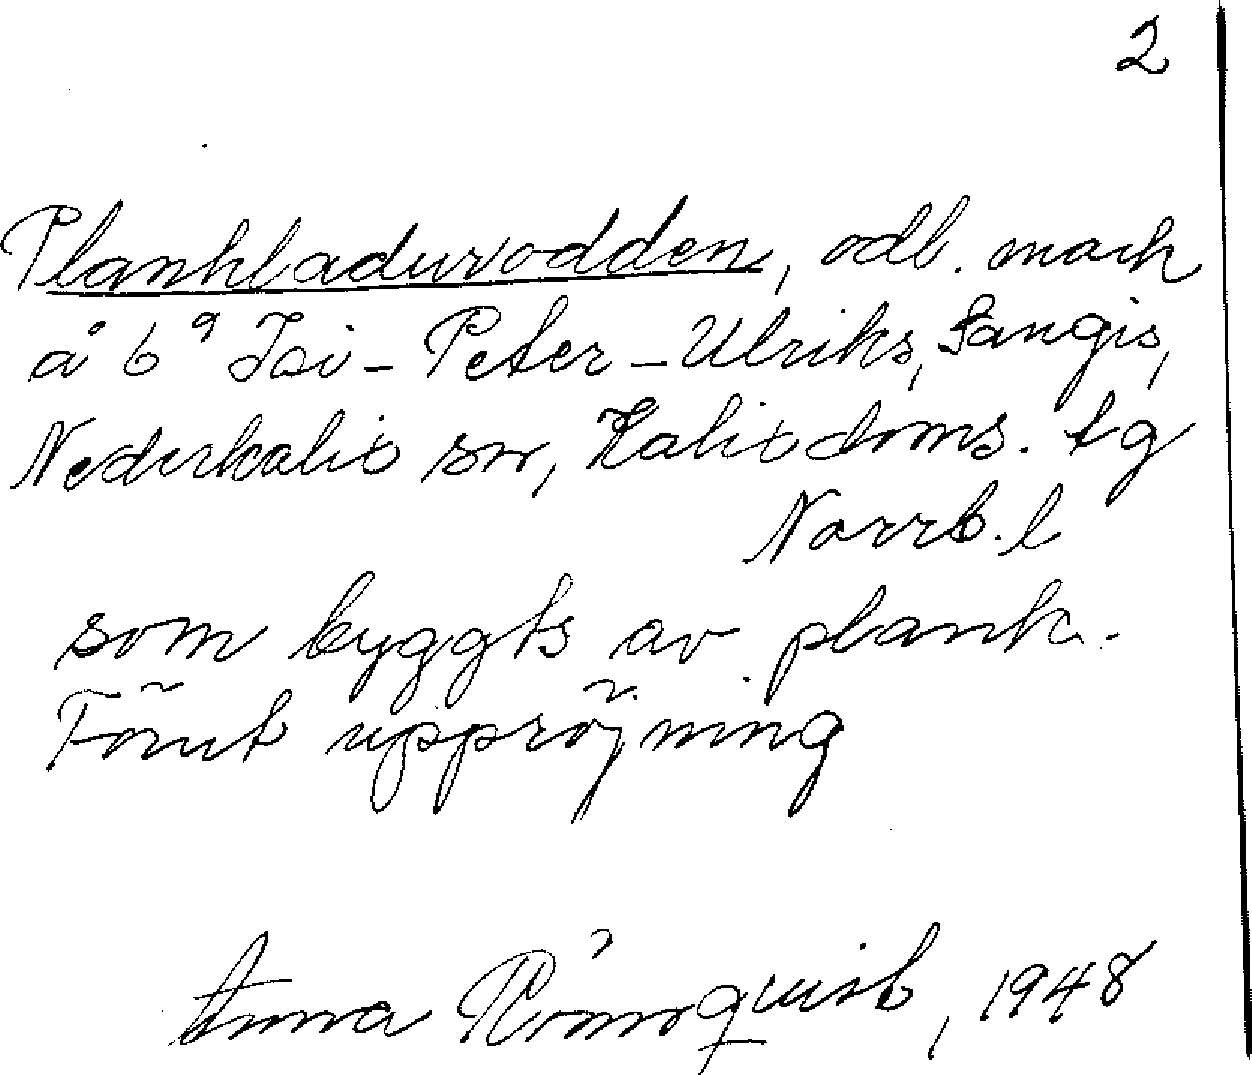 2
Planhladuvrodden, odb. mark
å 6⁹ Isi-Peter-Ulriks, Sangis,
Nederkalix sn, Kalix doms. tg
Norrb. l
som byggts av plank.
Förut uppröjning
Anna Rönnquist, 1948